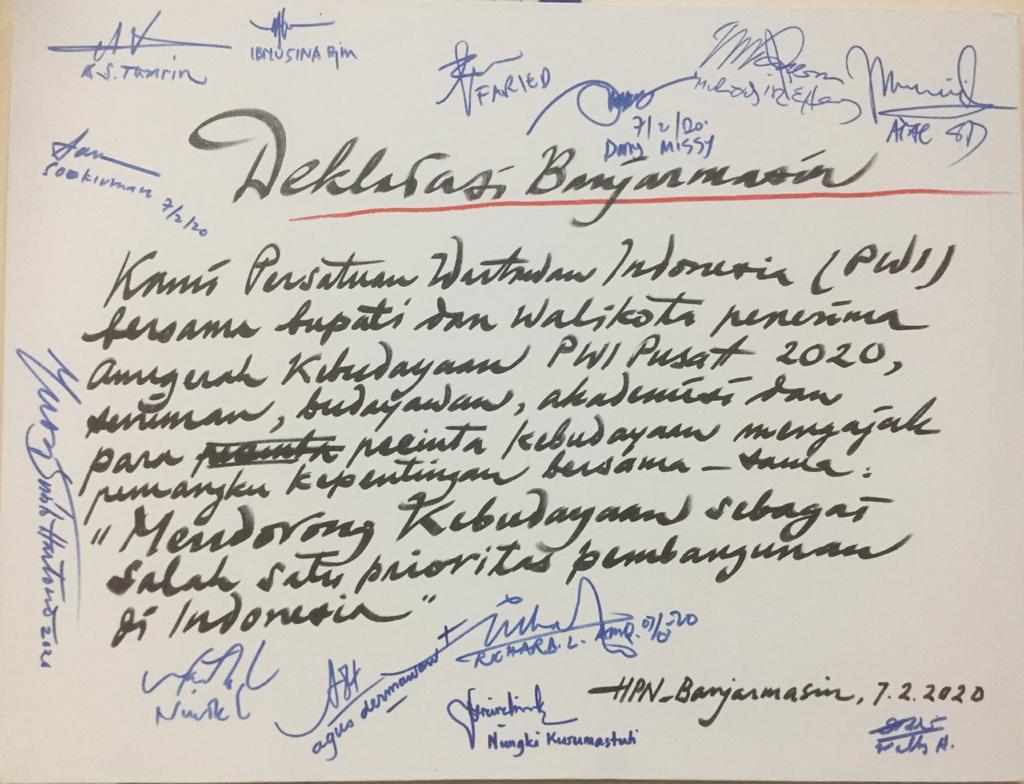 A.S. Tamrin
IBNUSINA Bjm
FARIED
7/2/20.
Dany MISSY
ATAL SD
Soekirman 7/2/20
Deklarasi Banjarmasin
Kami Persatuan Wartawan Indonesia (PWI)
bersama bupati dan Walikota penerima
Anugerah Kebudayaan PWI Pusat 2020,
seniman, budayawan, akademisi dan
para pecinta pecinta kebudayaan mengajak
pemangku kepentingan bersama-sama:
"Mendorong Kebudayaan sebagai
salah satu prioritas pembangunan
di Indonesia"
2020
agus dermawan t
RICHARD. L.
Nungki Kusumastuti
HPN-Banjarmasin, 7.2.2020